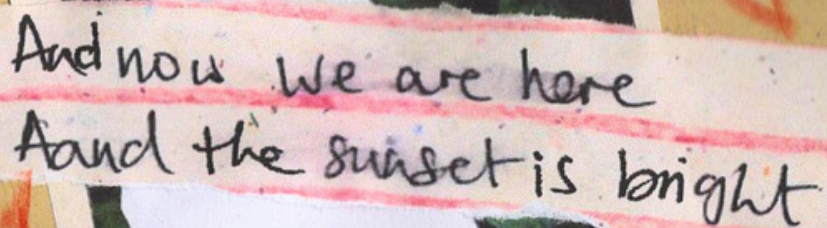 And now we are here
Aand the sunset is bright